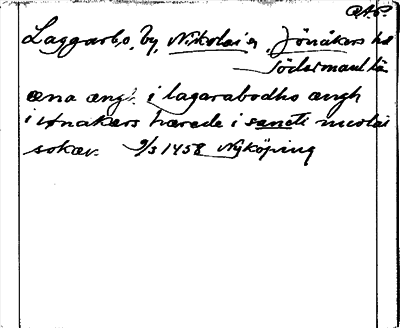 O.A.P.
Laggarbo, by, Nikolai sn, Jönåkers hd
Södermanl. län
æna ængh i lagarabodho ængh
i ionakærs hærede i sancti nicolai
sokæn. 9/3 1458 Nyköping